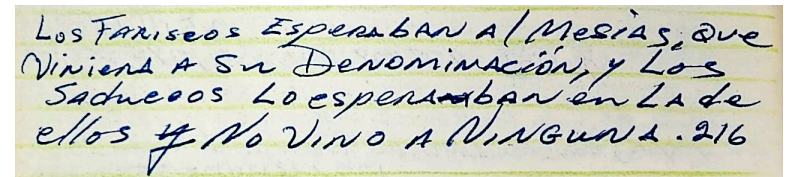 Los Fariseos Esperaban Al Mesías, Que
Viniera A Su Denominación, y Los
Saduceos Lo esperaban en La de
ellos y No Vino A Ninguna. 216